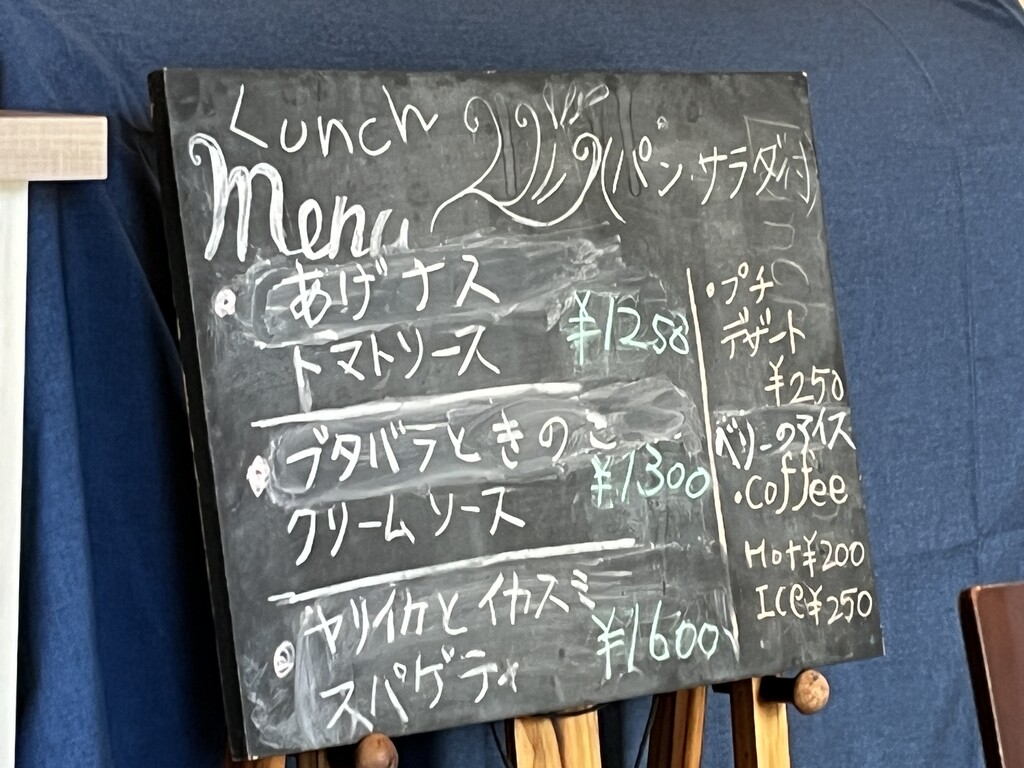 Lunch
Menu
(パン・サラダ付)
あげナス
トマトソース
¥1250
ブタバラときのこ
クリームソース
¥1300
ヤリイカとイカスミ
スパゲティ
¥1600
・プチ
デザート
¥250
ベリーのアイス
・Coffee
Hot ¥200
ICe ¥250